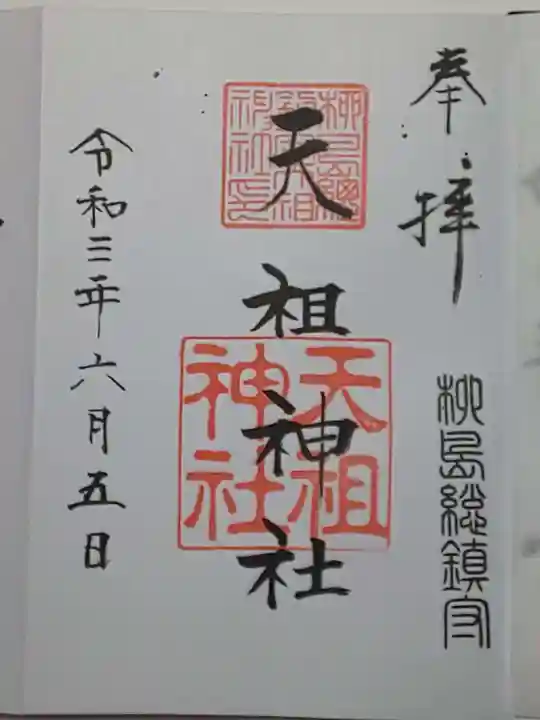 奉拝
柳島総鎮守
天祖神社
柳島総鎮守天祖神社印
天祖神社
令和三年六月五日